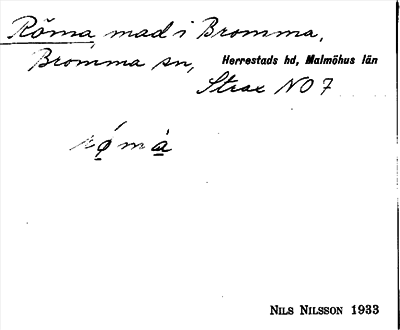 Röma, mad i Bromma,
Bromma sn, Herrestads hd, Malmöhus län
Strax NO 7
NILS NILSSON 1933